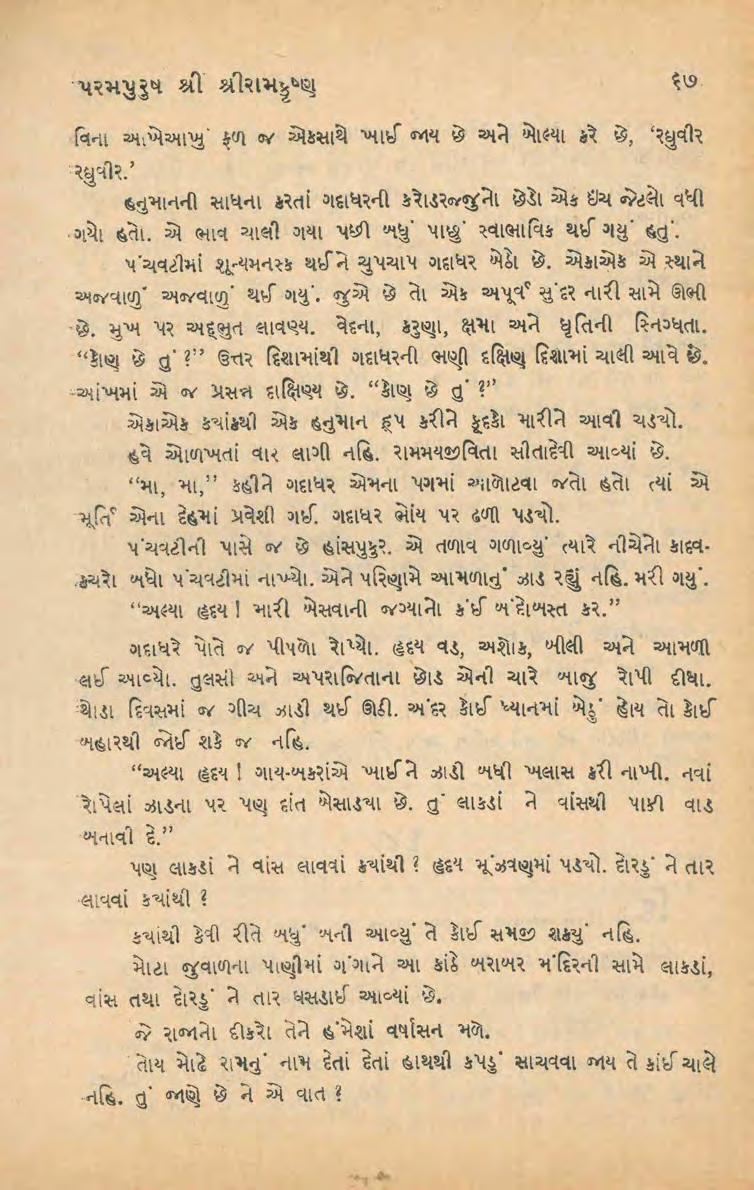 પરમપુરુષ શ્રી શ્રીરામકૃષ્ણ ૬૭
વિના આખેઆખું ફળ જ એકસાથે ખાઈ જાય છે અને બોલ્યા કરે છે, ‘રઘુવીર
રઘુવીર.’
હનુમાનની સાધના કરતાં ગદાધરની કરોડરજ્જુનો છેડો એક ઇંચ જેટલો વધી
ગયો હતો. એ ભાવ ચાલી ગયા પછી બધું પાછું સ્વાભાવિક થઈ ગયું હતું.
પંચવટીમાં શૂન્યમનસ્ક થઈને ચુપચાપ ગદાધર બેઠો છે. એકાએક એ સ્થાને
અજવાળું અજવાળું થઈ ગયું. જુએ છે તો એક અપૂર્વ સુંદર નારી સામે ઊભી
છે. મુખ પર અદ્ભુત લાવણ્ય. વેદના, કરુણા, ક્ષમા અને ધૃતિની સ્નિગ્ધતા.
“કોણ છે તું ?” ઉત્તર દિશામાંથી ગદાધરની ભણી દક્ષિણ દિશામાં ચાલી આવે છે.
આંખમાં એ જ પ્રસન્ન દાક્ષિણ્ય છે. “કોણ છે તું ?”
એકાએક કયાંકથી એક હનુમાન હૂપ કરીને કૂદકો મારીને આવી ચડયો.
હવે ઓળખતાં વાર લાગી નહિ. રામમયજીવિતા સીતાદેવી આવ્યાં છે.
“મા, મા,” કહીને ગદાધર એમના પગમાં આળોટવા જતો હતો ત્યાં એ
મૂર્તિ એના દેહમાં પ્રવેશી ગઈ. ગદાધર ભોંય પર ઢળી પડયો.
પંચવટીની પાસે જ છે હાંસપુકુર. એ તળાવ ગળાવ્યું ત્યારે નીચેનો કાદવ-
કચરો બધો પંચવટીમાં નાખ્યો. એને પરિણામે આમળાનું ઝાડ રહ્યું નહિ. મરી ગયું.
“અલ્યા હૃદય ! મારી બેસવાની જગ્યાનો કંઈ બંદોબસ્ત કર.”
ગદાધરે પોતે જ પીપળો રોપ્યો. હૃદય વડ, અશોક, બીલી અને આમળી
લઈ આવ્યો. તુલસી અને અપરાજિતાના છોડ એની ચારે બાજુ રોપી દીધા.
થોડા દિવસમાં જ ગીચ ઝાડી થઈ ઊઠી. અંદર કોઈ ધ્યાનમાં બેઠું હોય તો કોઈ
બહારથી જોઈ શકે જ નહિ.
“અલ્યા હૃદય ! ગાય-બકરાંએ ખાઈને ઝાડી બધી ખલાસ કરી નાખી. નવાં
રોપેલાં ઝાડના પર પણ દાંત બેસાડયા છે. તું લાકડાં ને વાંસથી પાકી વાડ
બનાવી દે.”
પણ લાકડાં ને વાંસ લાવવાં કયાંથી ? હૃદય મૂંઝવણમાં પડયો. દોરડું ને તાર
લાવવાં કયાંથી ?
કયાંથી કેવી રીતે બધું બની આવ્યું તે કોઈ સમજી શકયું નહિ.
મોટા જુવાળના પાણીમાં ગંગાને આ કાંઠે બરાબર મંદિરની સામે લાકડાં,
વાંસ તથા દોરડું ને તાર ઘસડાઈ આવ્યાં છે.
જે રાજાનો દીકરો તેને હંમેશાં વર્ષાસન મળે.
તોય મોઢે રામનું નામ દેતાં દેતાં હાથથી કપડું સાચવવા જાય તે કાંઈ ચાલે
નહિ. તું જાણે છે ને એ વાત ?